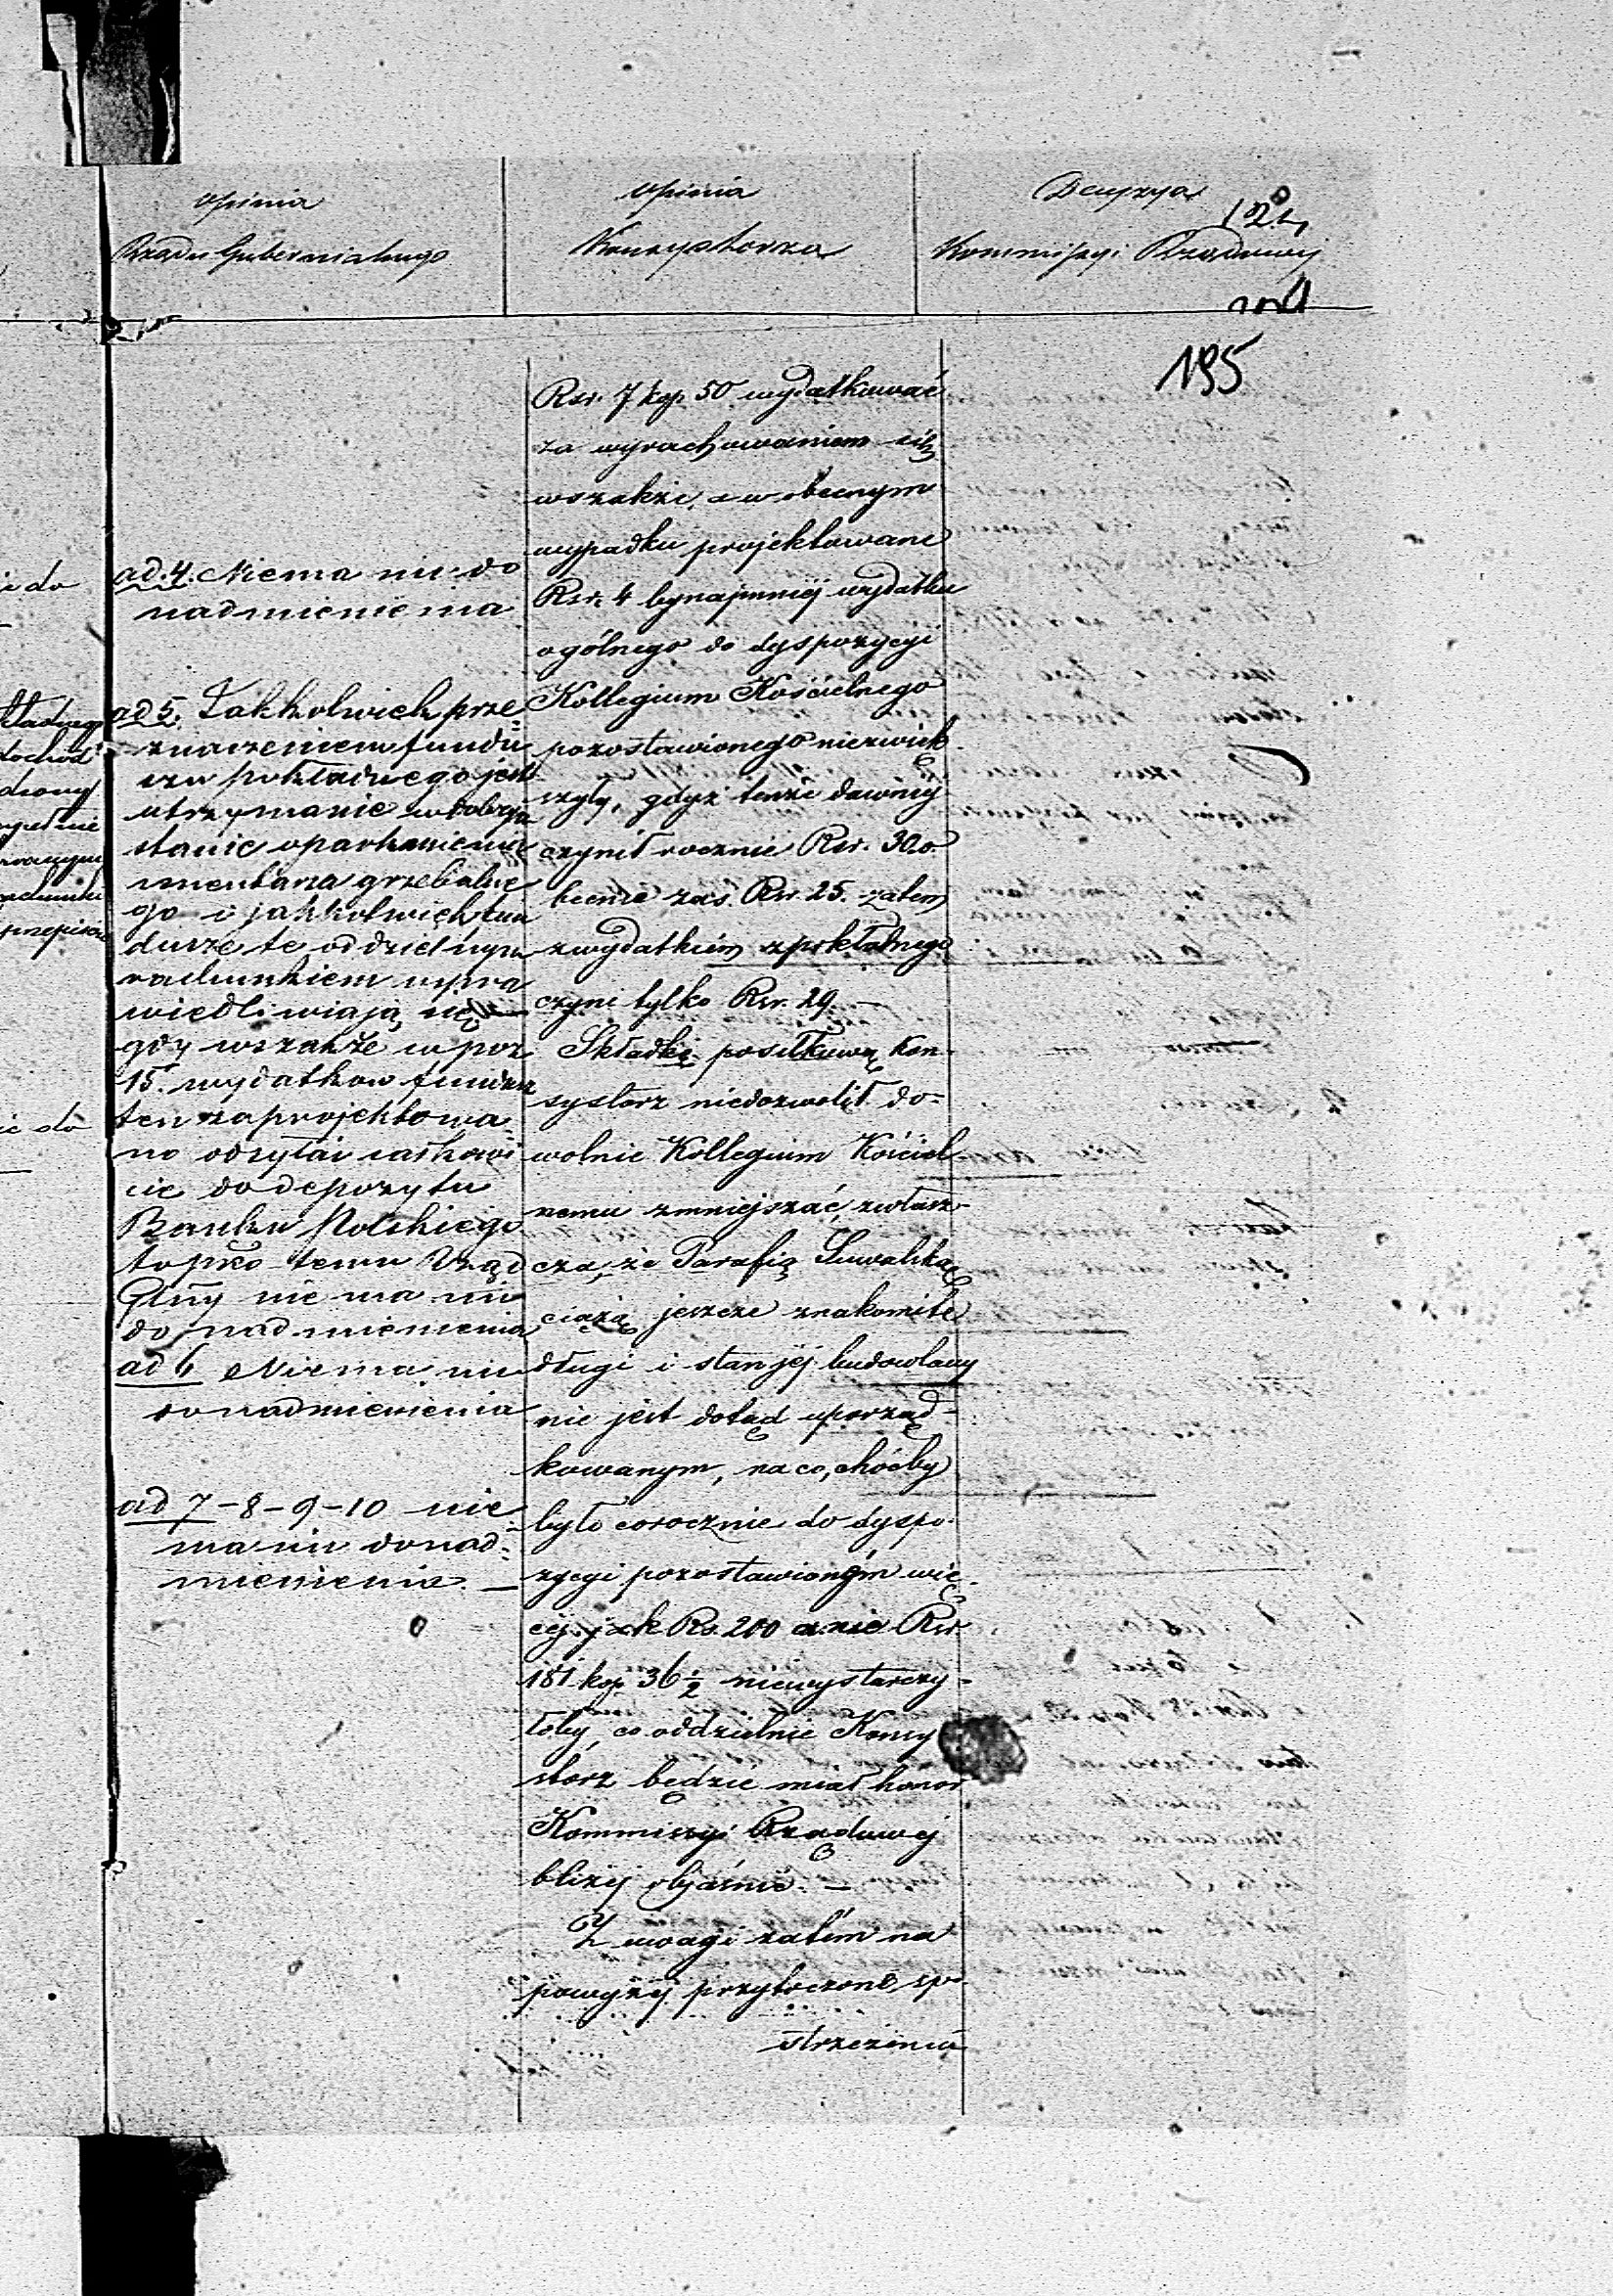 Opinia
Rządu Gubernialnego
Opinia
Konsystorza
Decyzya
Kommissyi Rządowej
195
ad.4. Niema nic do
nadmienienia
ad 5. Jakkolwiek prze-
znaczeniem fundu
szu pokładnego jest
utrzymanie w dobrym
stanie oparkanienia
cmentarza grzebalne
go i jakkolwiek fun
dusze te oddzielnym
rachunkiem uspra
wiedliwiają się
gdy wszakże w poz
15. wydatkow fundusz
ten zaprojektowa-
no odsyłać całkowi
cie do depozytu
Banku Polskiego
to prze-temu Rząd
Glny nie ma nic
do nadmienienia
ad 6 Niema nic
do nadmienienia
ad 7-8-9-10 nie
ma nic do nad-
mienienia. —
Rsr. 7 kop. 50 wydatkować
za wyrachowaniem się
wszakże, a w obecnym
wypadku projektowane
Rsr. 4 bynajmniej wydatku
ogólnego do dyspozycyi
Kollegium Kościelnego
pozostawionego niezwięk-
szyły, gdyż tenże dawniej
czynił rocznie Rsr. 30. o-
becnie zaś Rsr. 25. zatem
z wydatkiem z pokładnego
czyni tylko Rsr. 29. —
Składkę posiłkową Kon-
systorz niedozwolił do-
wolnie Kollegium Kościel-
nemu zmniejszać, zwłasz-
cza, że Parafią Suwalską
ciążą jeszcze znakomite
długi i stan jéj budowlany
nie jest dotąd uporząd-
kowanym, na co, choćby
było corocznie do dyspo-
zycyi pozostawioném wię-
céj jak Rs. 200 a nie Rsr.
181 kop. 36 1/2 niewystarczy-
łoby, co oddzielnie Konsy
storz będzie miał honor
Kommissyi Rządowej
bliżéj objaśnić. —
Z uwagi zatém na
powyżéj przytoczone spo-
strzeżenia